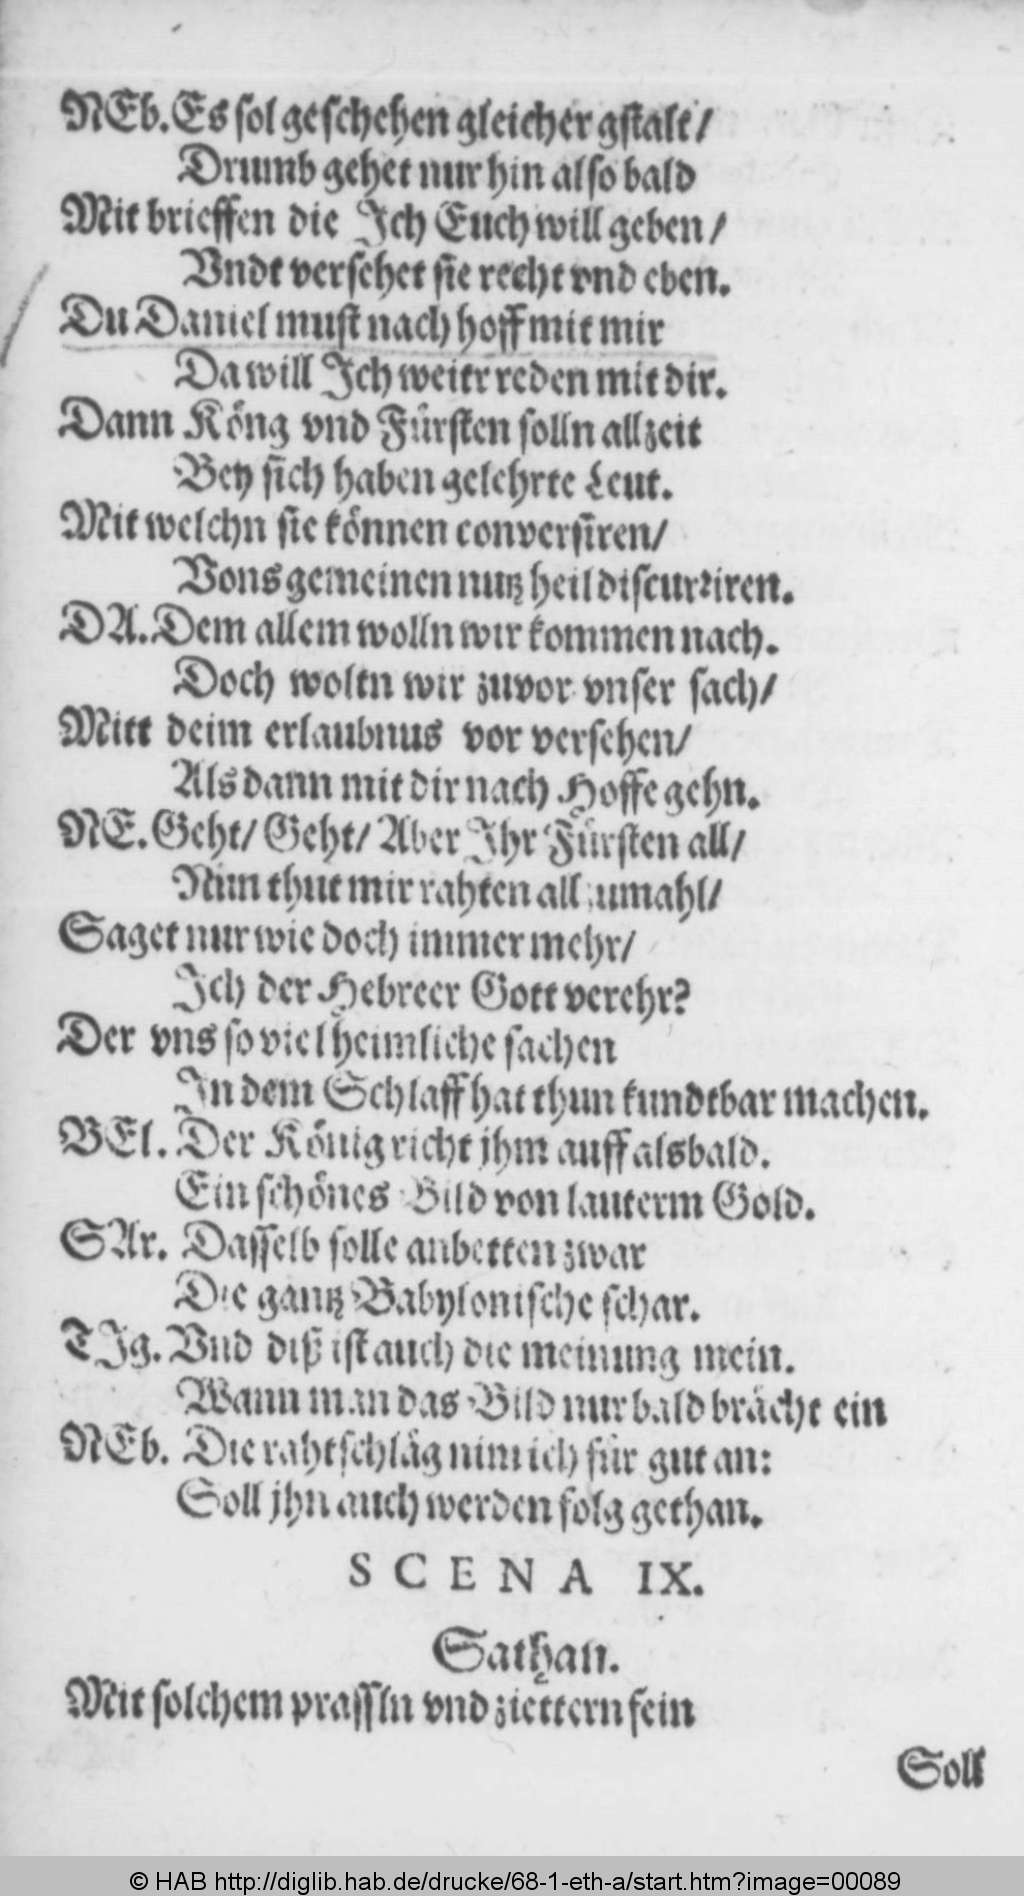 NEb. Es sol geschehen gleicher gstalt/
Drumb gehet nur hin also bald
Mit brieffen die Ich Euch will geben/
Vndt versehet sie recht vnd eben.
Du Daniel must nach hoff mit mir
Da will Ich weitr reden mit dir.
Dann Köng vnd Fürsten solln allzeit
Bey sich haben gelehrte Leut.
Mit welchn sie können conversiren/
Vons gemeinen nutz heil discurriren.
DA. Dem allem wolln wir kommen nach.
Doch woltn wir zuvor vnser sach/
Mitt deim erlaubnus vor versehen/
Als dann mit dir nach Hoffe gehn.
NE. Geht/ Geht/ Aber Ihr Fürsten all/
Nun thut mir rahten all zumahl/
Saget nur wie doch immer mehr/
Ich der Hebreer Gott verehr?
Der vns so viel heimliche sachen
In dem Schlaff hat thun kundtbar machen.
BEl. Der König richt jhm auff alsbald.
Ein schönes Bild von lauterm Gold.
SAr. Dasselb solle anbetten zwar
Die gantz Babylonische schar.
TIg. Vnd diß ist auch die meinung mein.
Wann man das Bild nur bald brächt ein
NEb. Die rahtschläg nim ich für gut an:
Soll jhn auch werden folg gethan.
SCENA IX.
Sathan.
Mit solchem prassln vnd ziettern fein
Soll
© HAB http://diglib.hab.de/drucke/68-1-eth-a/start.htm?image=00089